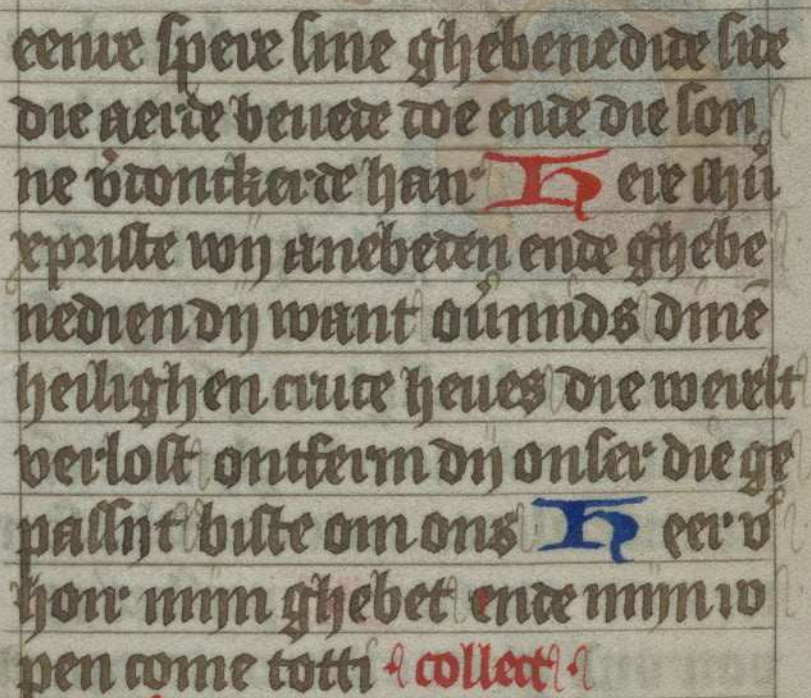 eenre spere sine ghebenedide side
die aerde beuede doe ende die son
ne v̾donckerde haer Here ihū
xpriste wij anebeden ende ghebe
nediendij want ouermids dinē
heilighen cruce heues die werelt
verlost ontferm dij onser die ge
passijt biste om ons Heer v̾
hoir mijn ghebet ende mijn ro
pen come totti collect